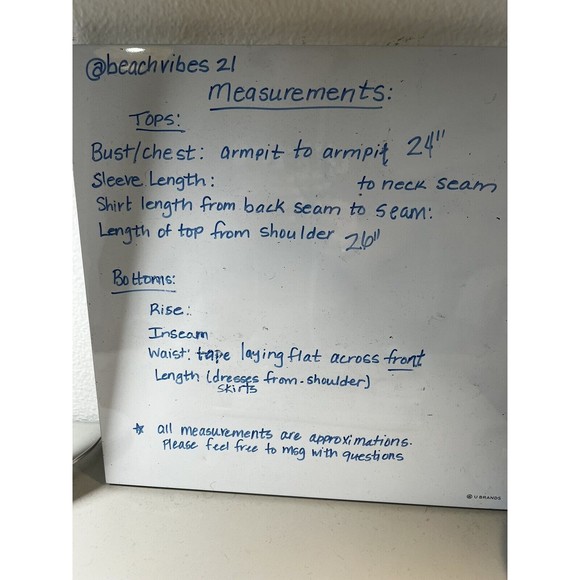 @beachvibes 21
Measurements:
TOPS:
Bust/chest: armpit to armpit 24"
Sleeve Length: to neck seam
Shirt length from back seam to seam:
Length of top from shoulder 26"
Bottoms:
Rise:
Inseam
Waist: tape laying flat across front
Length (dresses from-shoulder)
skirts
* all measurements are approximations.
Please feel free to msg with questions
U BRANDS